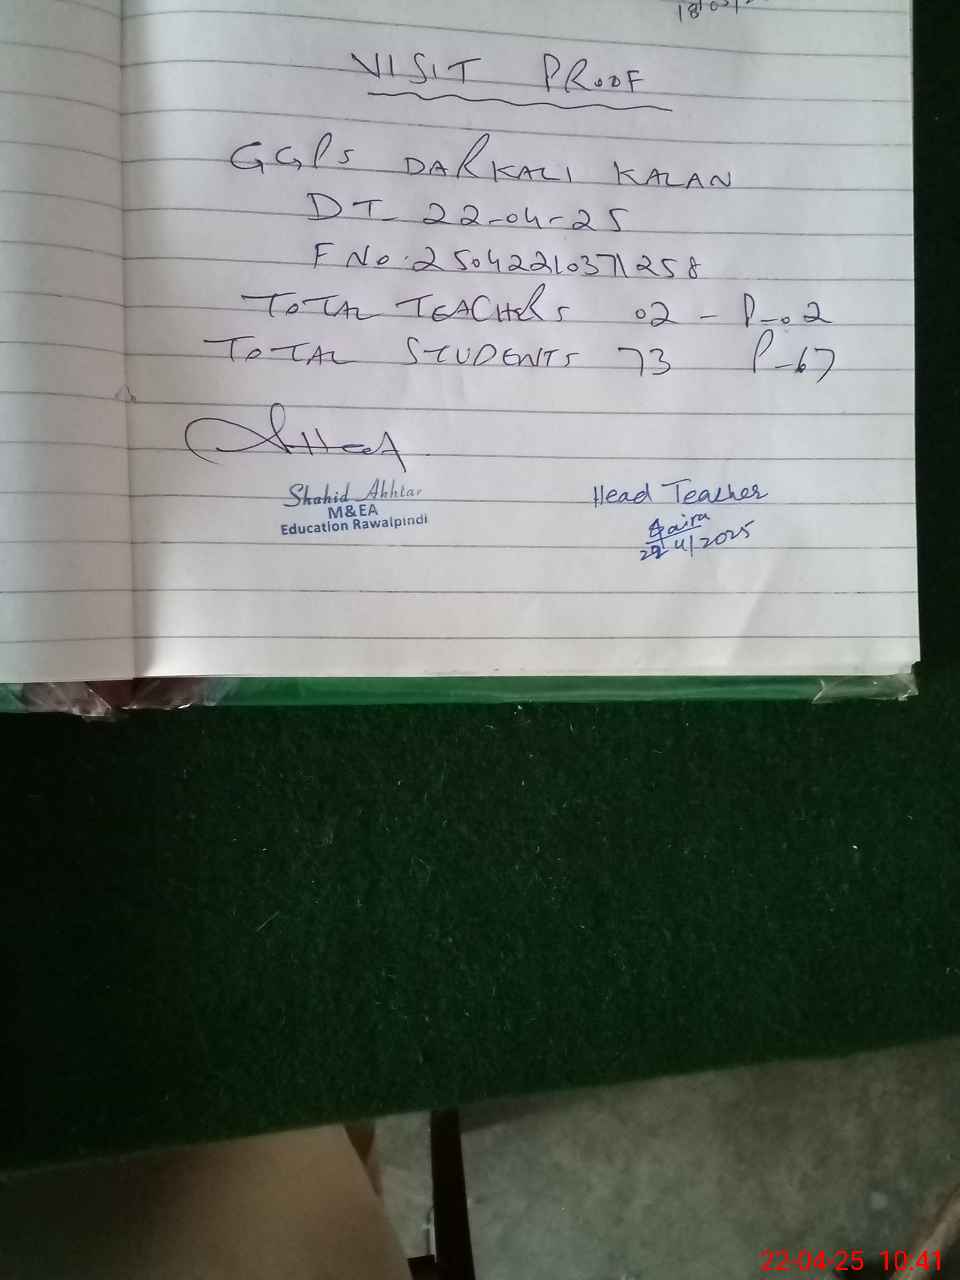 VISIT PROOF
GGPS DARKALI KALAN
DT 22-04-25
F No. 25042210371258
TOTAL TEACHERS 02 - P-02
TOTAL STUDENTS 73 P-67
Shahid Akhtar
M&EA
Education Rawalpindi
Head Teacher
22/4/2025
22-04-25 10:41